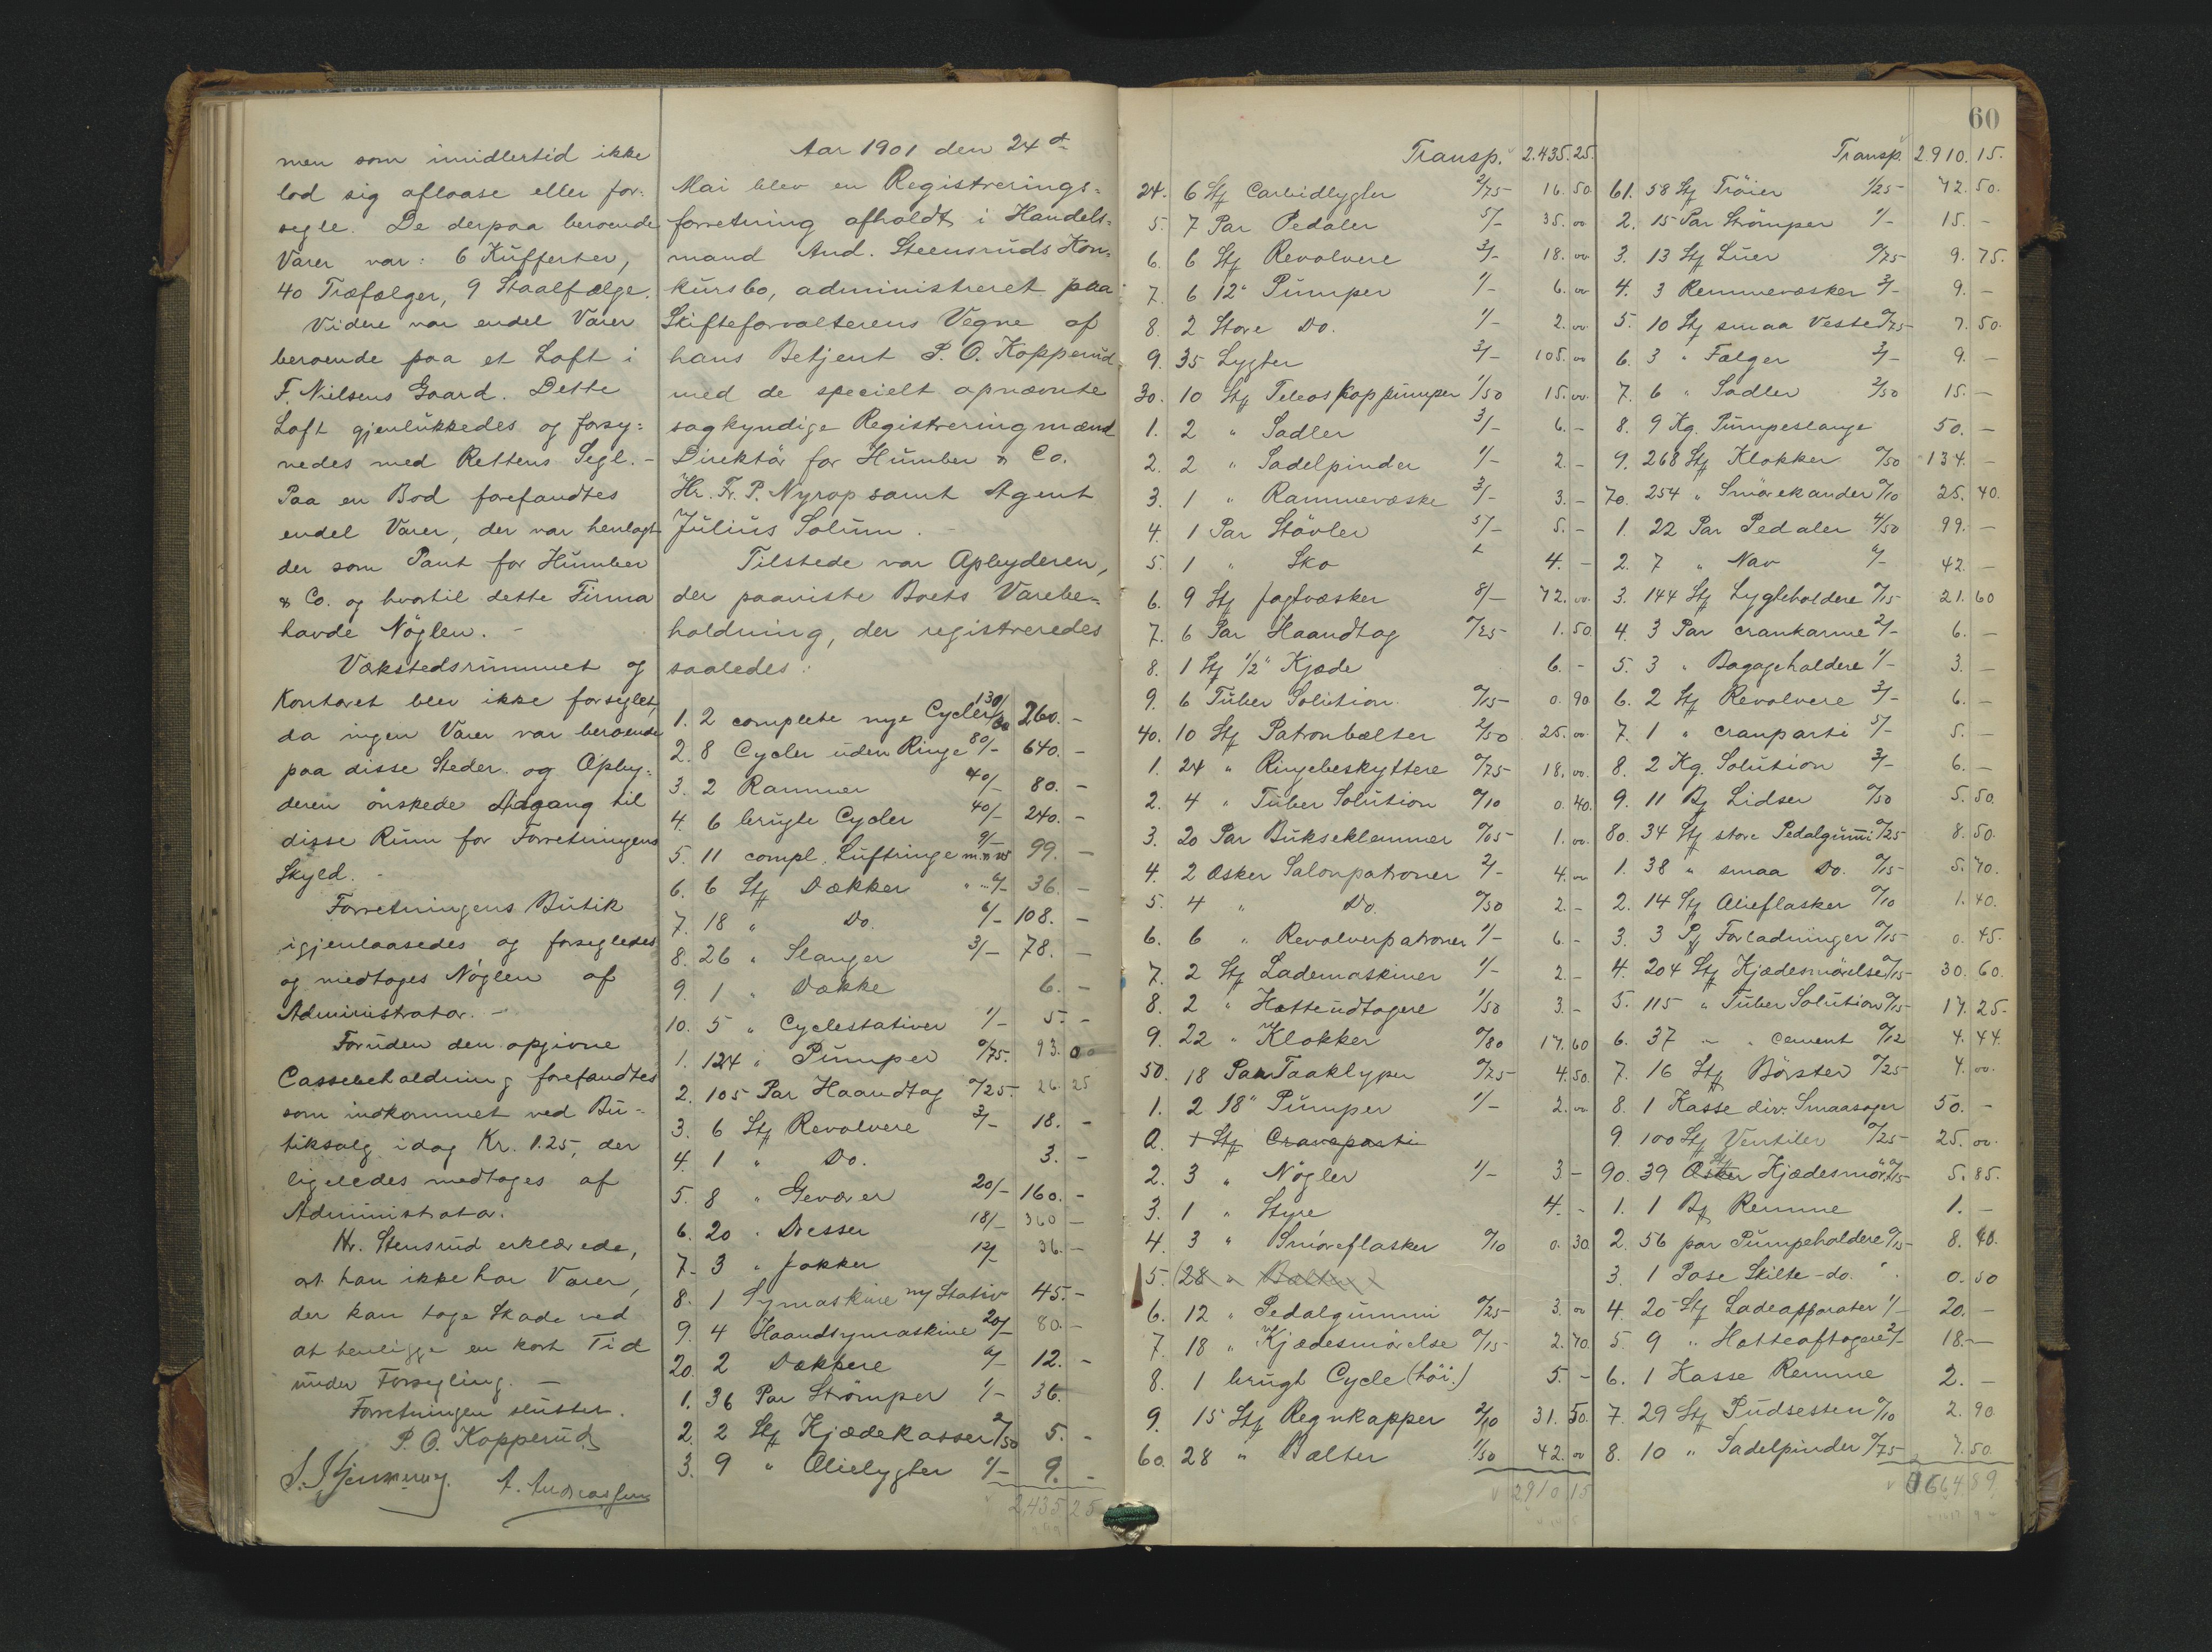 men som imidlertid ikke
lod sig aflaase eller for-
segle. De derpaa beroende
Varer var: 6 Kufferter,
40 Træfælger, 9 Staalfælge.
Videre var endel Varer
beroende paa et Loft i
F. Nielsens Gaard. Dette
Loft gjenlukkedes og forsy=
nedes med Rettens Segl. -
Paa en Bod forefandtes
endel Varer, der var henlagt
der som Pant for Humber
& Co. og hvortil dette Firma
havde Nøglen. -
Værkstedsrummet og
Kontoret blev ikke forseglet,
da ingen Varer var beroende
paa disse Steder og Opby-
deren ønskede Adgang til
disse Rum for Forretningens
Skyld. -
Forretningens Butik
igjenlaasedes og forsegledes
og medtoges Nøglen af
Administrator. -
Foruden den opgivne
Cassebeholdning forefandtes
som indkommet ved Bu-
tiksalg idag Kr. 1.25, der
ligeledes medtoges af
Administrator.
Hr. Stensrud erklærede,
at han ikke har Varer,
der kan tage Skade ved
at henligge en kort Tid
under Forsegling. -
Forretningen sluttet.
P. O. Kopperud
A. Andreassen
Aar 1901 den 24 d
Mai blev en Registrerings=
forretning afholdt i Handels=
mand And. Steensruds Kon=
kursbo, administreret paa
Skifteforvalterens Vegne af
hans Betjent P. O. Kopperud
med de specielt opnævnte
sagkyndige Registreringmænd
Direktør for Humber & Co.
Hr. Fr. P. Nyrop samt Agent
Julius Solum. -
Tilstede var Opbyderen,
der paaviste Boets Varebe=
holdning, der registreredes
saaledes:
1. 2 complete nye Cycler 130/ 260. -
2. 8 Cycler uden Ringe 80/- 640. -
3. 2 Rammer 40/- 80. -
4. 6 brugte Cycler 40/- 240. -
5. 11 compl. Luftringe 9/- 99. -
6. 6 Stk Dækker 6/- 36. -
7. 18 " Do. 6/- 108. -
8. 26 " Slanger 3/- 78. -
9. 1 " Dække 6. -
10. 5 " Cyclestativer 1/- 5. -
1. 124 " Pumper 0/75. 93. 00
2. 105 Par Haandtag 0/25. 26. 25
3. 6 Stk Revolvere 3/- 18. -
4. 1 " Do. 3. -
5. 8 " Geværer 20/- 160. -
6. 20 " Dresser 18/- 360 -
7. 3 " Jakker 12/- 36. -
8. 1 Symaskine ny Stativ 45. -
9. 4 Haandsymaskine 20/- 80. -
20. 2 Dækkere 6/- 12. -
1. 36 Par Strømper 1/- 36.
2. 2 Stk Kjædekasser 2/50 5. -
3. 9 " Olielygter 1/- 9. -
2,435 25
Transp. 2.435.25.
24. 6 Stk Carbidlygter 2/75 16.50
5. 7 Par Pedaler 5/- 35.00
6. 6 Stk Revolvere 3/- 18.00
7. 6 12" Pumper 1/- 6.00
8. 2 Store Do. 1/- 2.00
9. 35 Lygter 3/- 105.00
30. 10 Stk Teleoskoppumper 1/50 15.00
1. 2 " Sadler 3/- 6. -
2. 2 " Sadelpinder 1/- 2. -
3. 1 " Rammevæske 3/- 3. -
4. 1 Par Støvler 5/- 5. -
5. 1 " Sko 4. -
6. 9 Stk Jagtvæsker 8/- 72.00
7. 6 Par Haandtag 0/25 1.50
8. 1 Stk 1/2" Kjæde 6. -
9. 6 Tuber Solution 0/15 0.90
40. 10 Stk Patronbælter 2/50 25.00
1. 24 " Ringebeskyttere 0/75 18.00
2. 4 " Tuber Solution 0/10 0.40
3. 20 Par Bukseklemmer 0/05 1.00
4. 2 Æsker Salonpatroner 2/- 4.00
5. 4 " Do. 0/50 2. -
6. 6 " Revolverpatroner 1/- 6. -
7. 2 Stk Lademaskiner 1/- 2. -
8. 2 " Hætteudtagere 1/50 3. -
9. 22 " Klokker 0/80 17.60
50. 18 Par Taaklyper 0/25 4.50
1. 2 18" Pumper 1/- 2.00
1 Stk Craveparti
2. 3 " Nøgler 1/- 3 -
3. 1 " Styre 4. -
4. 3 " Smøreflasker 0/10 0.30
5. (28 " Bælter)
6. 12 " Pedalgummi 0/25 3.00
7. 18 " Kjædesmørelse 0/15 2.70
8. 1 brugt Cycle (høi.) 5. -
9. 15 Stk Regnkapper 2/10 31.50
60. 28 " Bælter 1/50 42.00
2910 15
60
Transp. 2.910.15.
61. 58 Stk Trøier 1/25 72.50.
2. 15 Par Strømper 1/- 15. -
3. 13 Stk Luer 0/75 9.75.
4. 3 Remmevæsker 3/- 9. -
5. 10 Stk smaa Veste 0/75 7.50
6. 3 " Fælger 3/- 9. -
7. 6 " Sadler 2/50 15. -
8. 9 Kg. Pumpeslange 50. -
9. 268 Stk Klokker 0/50 134. -
70. 254 " Smørekander 0/10 25.40.
1. 22 Par Pedaler 4/50 99. -
2. 7 " Nav 6/- 42. -
3. 144 Stk Lygteholdere 0/15 21.60
4. 3 Par crankarme 2/- 6. -
5. 3 " Bagageholdere 1/- 3. -
6. 2 Stk Revolvere 3/- 6. -
7. 1 " cranparti 5/- 5. -
8. 2 Kg. Solution 3/- 6. -
9. 11 Bt Lidser 0/50 5.50.
80. 34 Stk store Pedalgummi 0/25 8.50.
1. 38 " smaa Do. 0/15 5.70.
2. 14 Stk Olieflasker 0/10 1.40.
3. 3 Pk Forladninger 0/15 0.45.
4. 204 Stk Kjædesmørelse 0/15 30.60.
5. 115 " Tuber Solution 0/15 17.25
6. 37 " " Cement 0/12 4.44.
7. 16 Stk Børster 0/25 4.00.
8. 1 Kasse div. Smaasager 50. -
9. 100 Stk Ventiler 0/25 25.00.
90. 39 Stk Kjædesmør. 0/15 5.85.
1. 1 Bt Remme 1. -
2. 56 par Pumpeholdere 0/15 8.40.
3. 1 Pose Skilte-do. 0.50
4. 20 Stk Ladeapparater 1/- 20. -
5. 9 " Hætteaftagere 2/- 18. -
6. 1 Kasse Remme 2. -
7. 29 Stk Pudsesten 0/10 2.90
8. 10 " Sadelpinder 0/75 7.50
3664 89